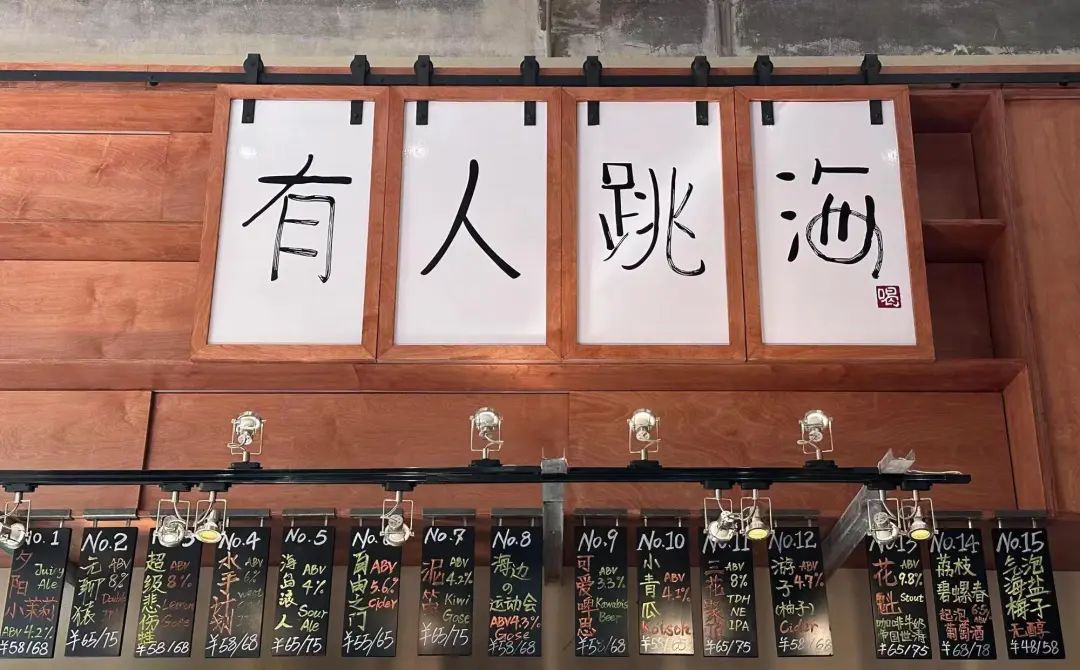 有人跳海
喝
No.1
夕阳小茉莉
Juicy
Ale
ABV 4.2%
¥58/68
No.2
无朝猿
ABV
8%
Double
¥65/75
超级悲伤蛙
ABV
8%
Lemon
Gose
¥58/68
No.4
水手计划
ABV
6%
west
¥58/68
No.5
海岛浪人
ABV
4%
Sour
Ale
¥58/68
自由之门
ABV
5.6%
Cider
¥55/65
No.7
泥笛
ABV
4.2%
Kiwi
Gose
¥65/75
No.8
海边の运动会
ABV4.3%
Gose
¥58/68
No.9
可爱嘤思
ABV
3.3%
Kawabis
Beer
¥58/68
No.10
小青瓜
ABV
4.1%
Kolsch
¥55/65
No.11
二花聚猿
ABV
8%
TDH
NE
IPA
¥65/75
No.12
游子
(柚子)
ABV
4.7%
Cider
¥58/68
No.13
花魁
ABV
9.8%
Stout
咖啡牛奶
帝国世涛
¥65/75
No.14
荔枝碧螺春
ABV
起泡
葡萄酒
¥68/78
No.15
气泡海盐梅子
无醇
¥48/58